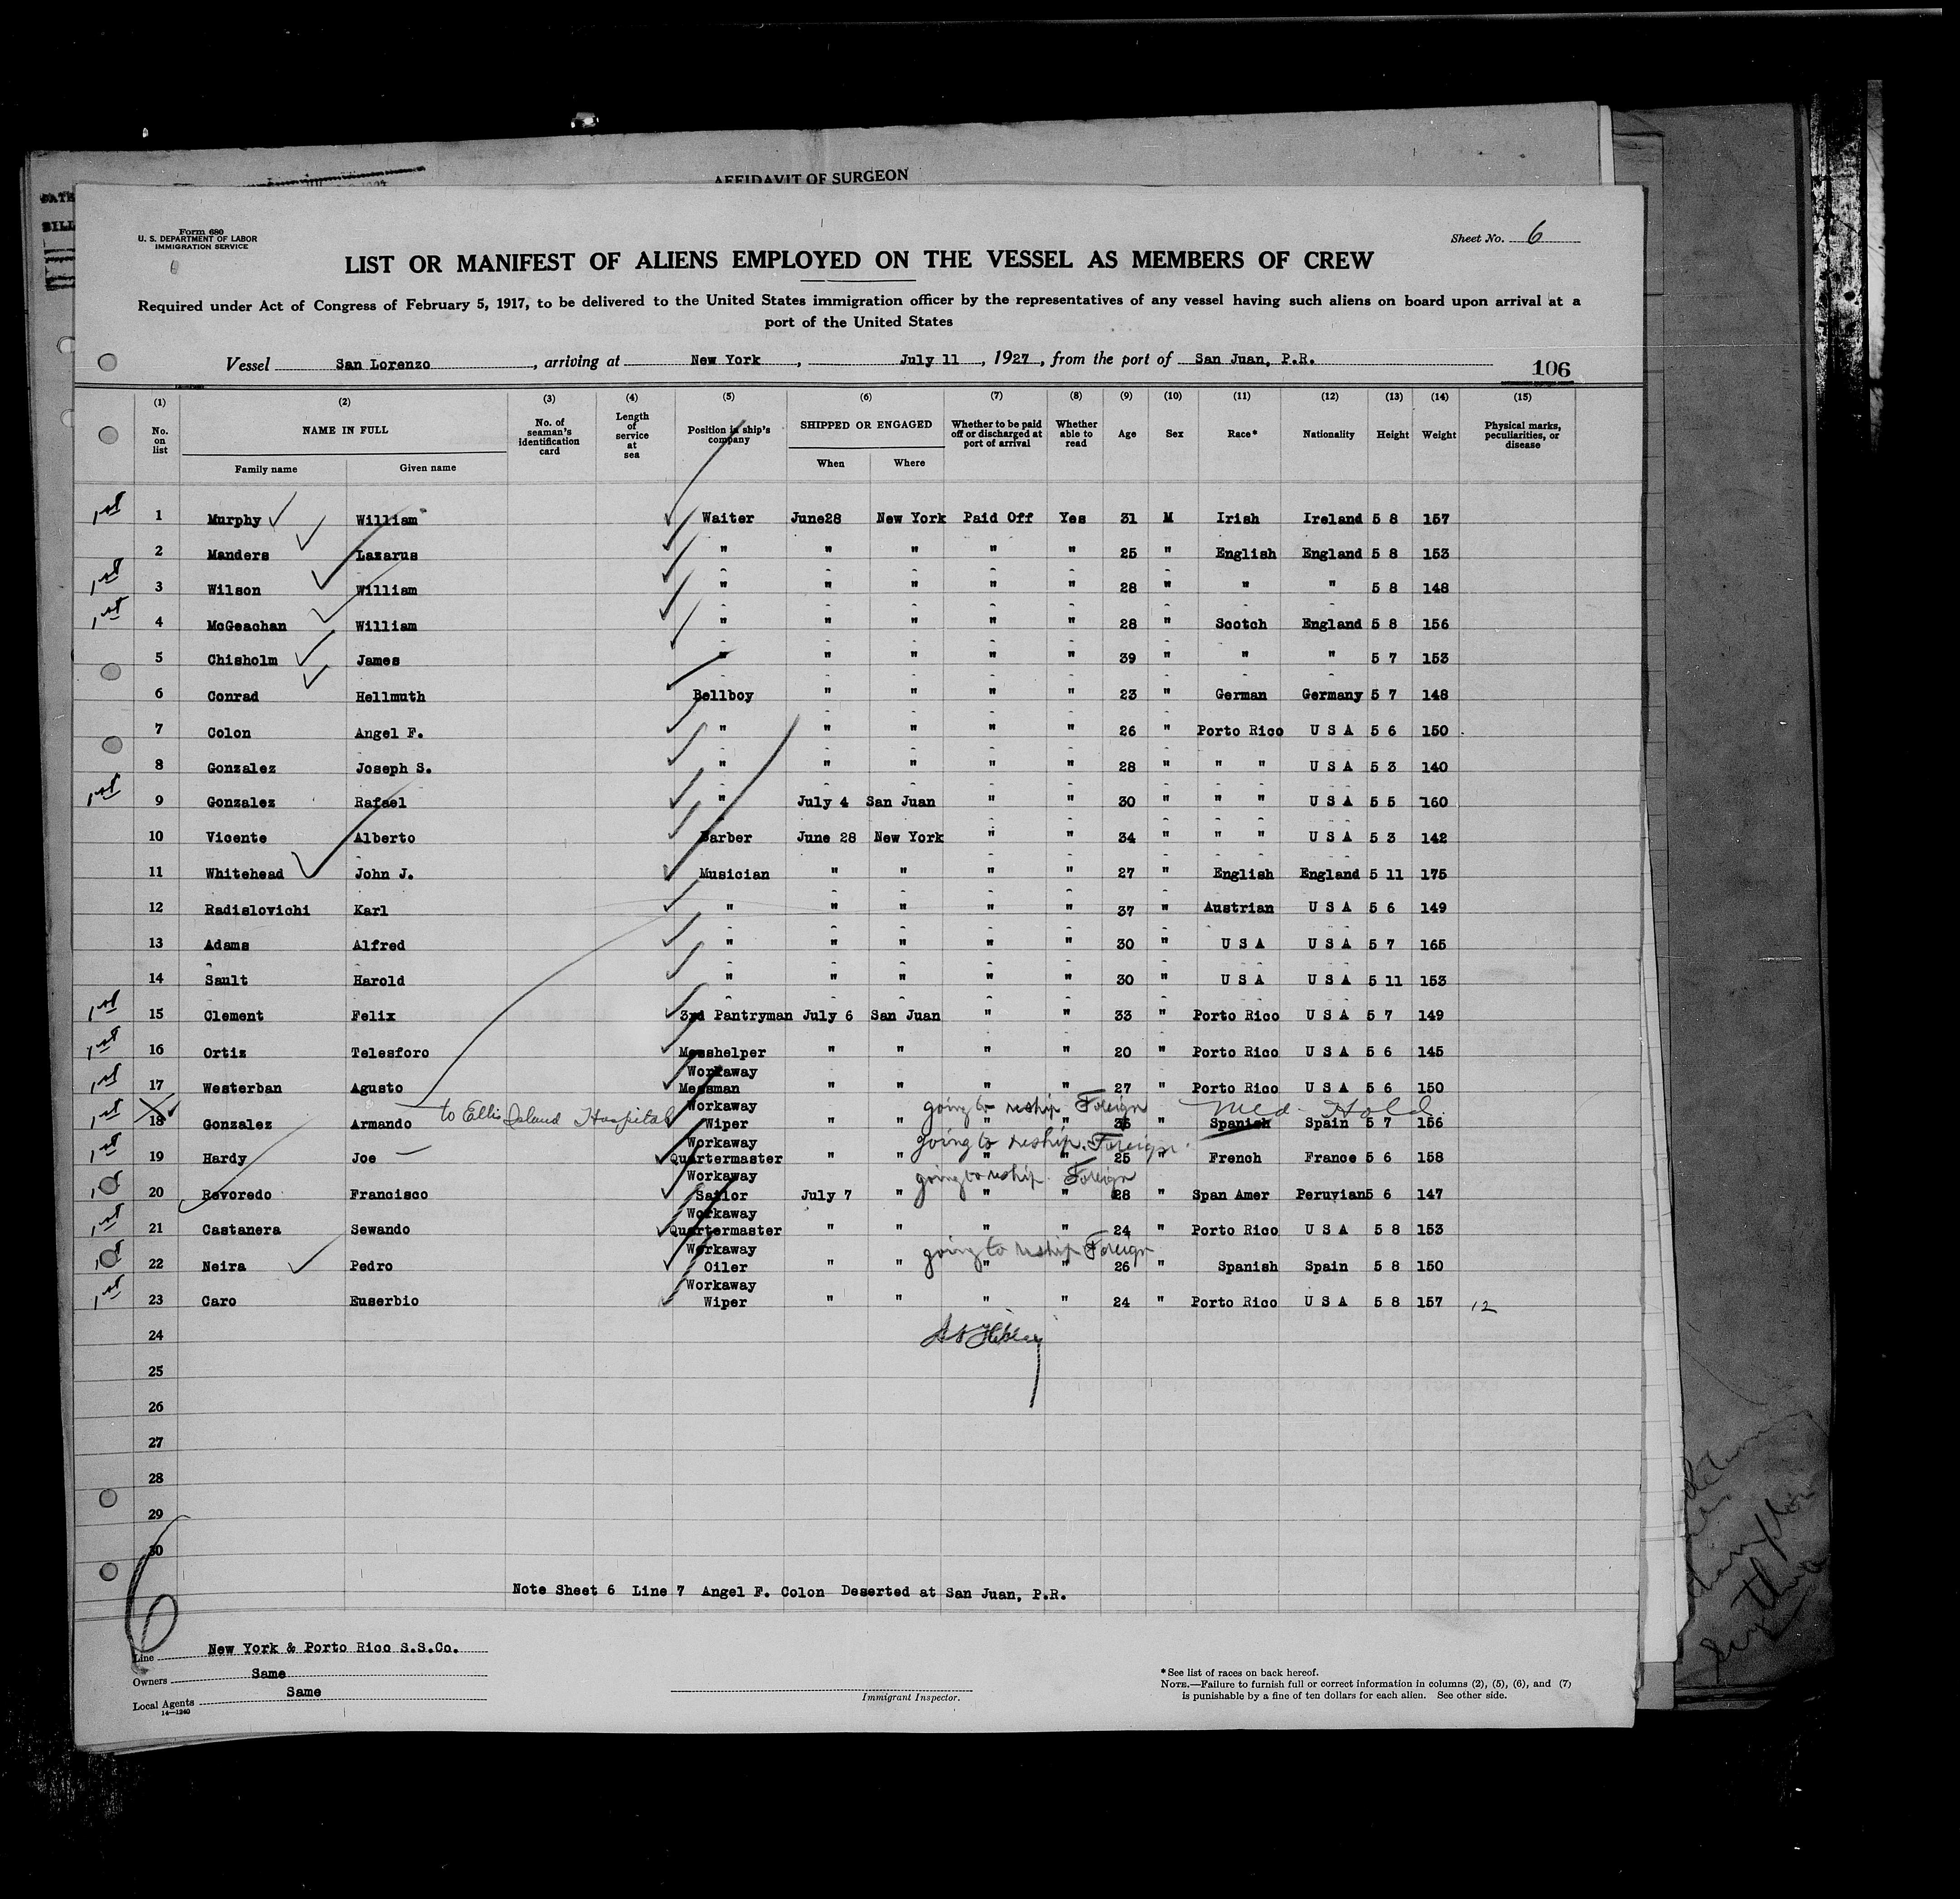 AFFIDAVIT OF SURGEON
Form 680
U. S. DEPARTMENT OF LABOR
IMMIGRATION SERVICE
Sheet No. 6
LIST OR MANIFEST OF ALIENS EMPLOYED ON THE VESSEL AS MEMBERS OF CREW
Required under Act of Congress of February 5, 1917, to be delivered to the United States immigration officer by the representatives of any vessel having such aliens on board upon arrival at a
port of the United States
Vessel San Lorenzo, arriving at New York, July 11, 1927, from the port of San Juan, P.R.
106
(1) (2) (3) (4) (5) (6) (7) (8) (9) (10) (11) (12) (13) (14) (15)
No. on list NAME IN FULL Family name Given name No. of seaman's identification card Length of service at sea Position in ship's company SHIPPED OR ENGAGED When Where Whether to be paid off or discharged at port of arrival Whether able to read Age Sex Race* Nationality Height Weight Physical marks, peculiarities, or disease
1st 1 Murphy William Waiter June28 New York Paid Off Yes 31 M Irish Ireland 5 8 157
2 Manders Lazarus " " " " " 25 " English England 5 8 153
1st 3 Wilson William " " " " " 28 " " " 5 8 148
1st 4 McGeachan William " " " " " 28 " Scotch England 5 8 156
5 Chisholm James " " " " " 39 " " " 5 7 153
6 Conrad Hellmuth Bellboy " " " " 23 " German Germany 5 7 148
7 Colon Angel F. " " " " " 26 " Porto Rico U S A 5 6 150
8 Gonzalez Joseph S. " " " " " 28 " " " U S A 5 3 140
1st 9 Gonzalez Rafael " July 4 San Juan " " 30 " " " U S A 5 5 160
10 Vicente Alberto Barber June 28 New York " " 34 " " " U S A 5 3 142
11 Whitehead John J. Musician " " " " 27 " English England 5 11 175
12 Radislovichi Karl " " " " " 37 " Austrian U S A 5 6 149
13 Adams Alfred " " " " " 30 " U S A U S A 5 7 165
14 Sault Harold " " " " " 30 " U S A U S A 5 11 153
1st 15 Clement Felix 3rd Pantryman July 6 San Juan " " 33 " Porto Rico U S A 5 7 149
1st 16 Ortiz Telesforo Messhelper " " " " 20 " Porto Rico U S A 5 6 145
Workaway
1st 17 Westerban Agusto Messman " " " " 27 " Porto Rico U S A 5 6 150
to Ellis Island Hospital Workaway going to reship Foreign Med. Hold
1st 18 Gonzalez Armando Wiper " " " " 36 " Spanish Spain 5 7 156
Workaway going to reship Foreign
1st 19 Hardy Joe Quartermaster " " " " 25 " French France 5 6 158
Workaway going to reship Foreign
20 Revoredo Francisco Sailor July 7 " " " 28 " Span Amer Peruvian 5 6 147
Workaway
1st 21 Castanera Sewando Quartermaster " " " " 24 " Porto Rico U S A 5 8 153
Workaway going to reship Foreign
22 Neira Pedro Oiler " " " " 26 " Spanish Spain 5 8 150
Workaway
1st 23 Caro Euserbio Wiper " " " " 24 " Porto Rico U S A 5 8 157 12
24
25
26
27
28
29
30
Note Sheet 6 Line 7 Angel F. Colon Deserted at San Juan, P.R.
6
Line New York & Porto Rico S.S.Co.
Owners Same
Local Agents Same
14—1240
Immigrant Inspector.
*See list of races on back hereof.
NOTE.—Failure to furnish full or correct information in columns (2), (5), (6), and (7)
is punishable by a fine of ten dollars for each alien. See other side.